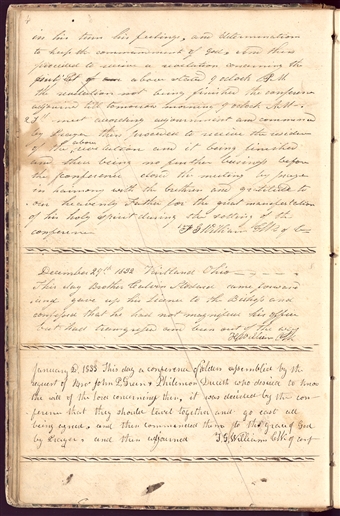 in his turn his feelings, and determination
to keep the commandments of God, &
proceded to receive a revelation concerning the
above stated 9 oclock P.M
the revelation not being finished the conference
adjourned till tomorrow morning 9 oclock A.M-
28th meet according adjournment and commenced
by Prayer then proceded to receive the residue
of the above revelation and it being finished
and there being no further business before
the conference closed the meeting by prayer
in harmony with the brethren and gratitude to
our heavenly Father for the great manifestation
of his holy Spirit during the setting of the
conference F G Williams Clk of Con
December 29th 1832 Kirtland Ohio
This day Brother Calvin Stodard came forward
and gave up his License to the Bishop and
confessed that he had not magnified his office
but had transgressed and been out of the way
F G Williams Clk
January 2d. 1833 This day a conference of elders assembled by the
request of Bro John P. Green & Philemon Duzett who desired to know
the will of the Lord concerning them, it was decided by the con-
ference that they should travel together and go east all
being agreed, and then commended them to the grace of God
by Prayer and then adjourned F. G. Williams Clk of conf